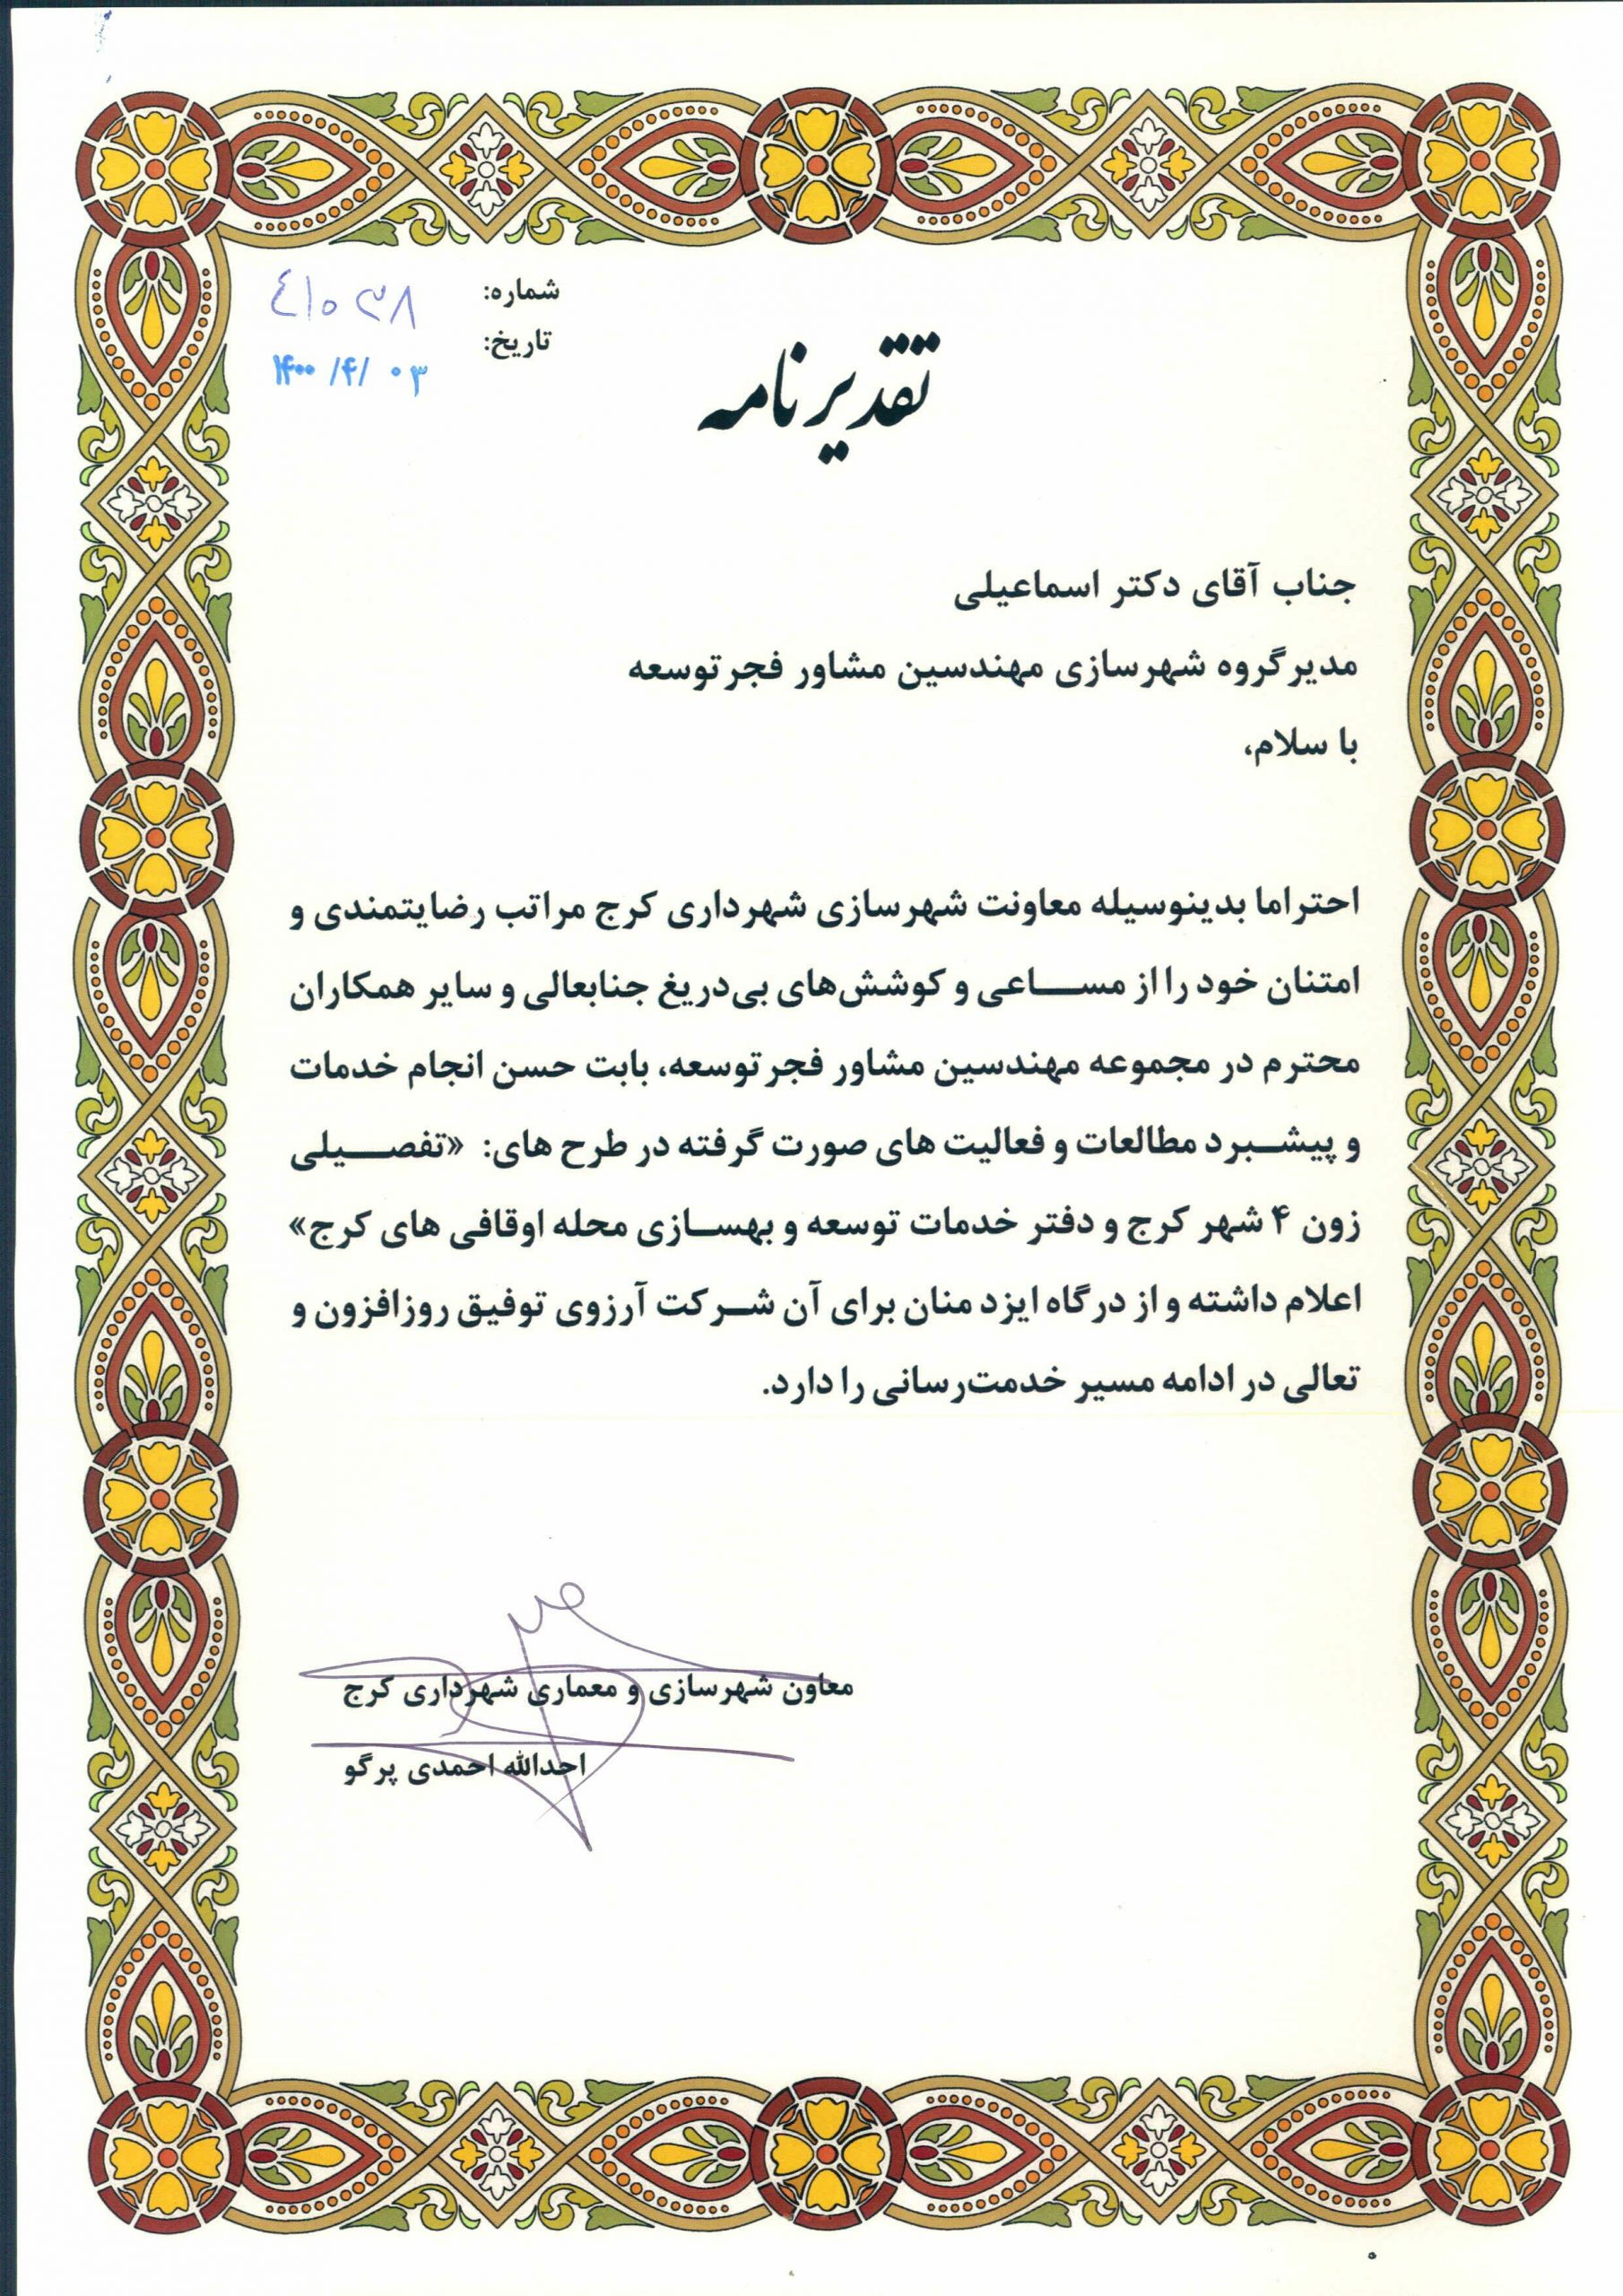 شماره:
تاریخ: ۱۴۰۰/۴/۰۳
تقدیرنامه
جناب آقای دکتر اسماعیلی
مدیر گروه شهرسازی مهندسین مشاور فجر توسعه
با سلام،
احتراما بدینوسیله معاونت شهرسازی شهرداری کرج مراتب رضایتمندی و
امتنان خود را از مساعی و کوشش‌های بی‌دریغ جنابعالی و سایر همکاران
محترم در مجموعه مهندسین مشاور فجر توسعه، بابت حسن انجام خدمات
و پیشبرد مطالعات و فعالیت های صورت گرفته در طرح های: «تفصیلی
زون ۴ شهر کرج و دفتر خدمات توسعه و بهسازی محله اوقافی های کرج»
اعلام داشته و از درگاه ایزد منان برای آن شرکت آرزوی توفیق روزافزون و
تعالی در ادامه مسیر خدمت‌رسانی را دارد.
معاون شهرسازی و معماری شهرداری کرج
احدالله احمدی پرگو